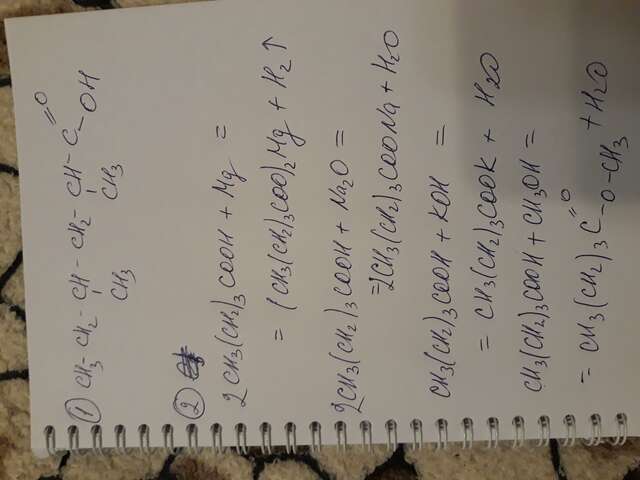 ① CH3 - CH2 - CH - CH2 - CH - C =O - OH
CH3 CH3
②
2CH3(CH2)3COOH + Mg =
= (CH3(CH2)3COO)2Mg + H2↑
2CH3(CH2)3COOH + Na2O =
=2CH3(CH2)3COONa + H2O
CH3(CH2)3COOH + KOH =
= CH3(CH2)3COOK + H2O
CH3(CH2)3COOH + CH3OH =
= CH3(CH2)3C =O - O - CH3 + H2O